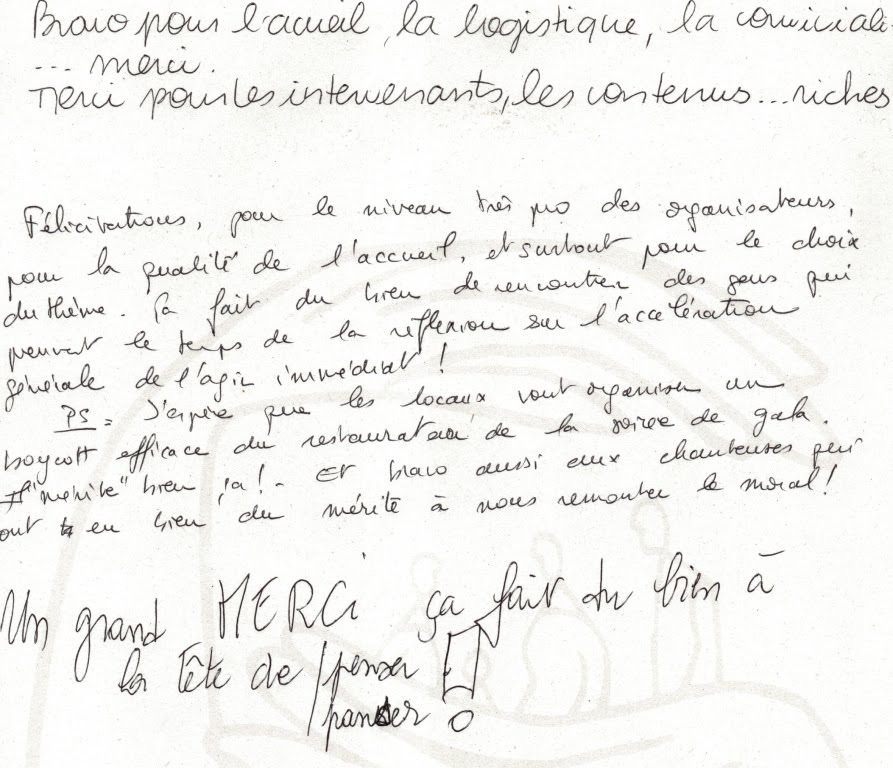 Bravo pour l'accueil, la logistique, la conviviali
... merci.
Merci pour les intervenants, les contenus... riches
Félicitations, pour le niveau très pro des organisateurs,
pour la qualité de l'accueil, et surtout pour le choix
du thème. Ça fait du bien de rencontrer des gens qui
peuvent le temps de la réflexion sur l'accélération
générale de l'agir immédiat !
PS = J'espère que les locaux vont organiser un
boycott efficace du restaurateur de la soirée de gala.
Il "mérite" bien ça ! - Et bravo aussi aux chanteuses qui
ont eu bien du mérite à nous remonter le moral !
Un grand MERCi ça fait du bien à
la tête de /penser !
/panser